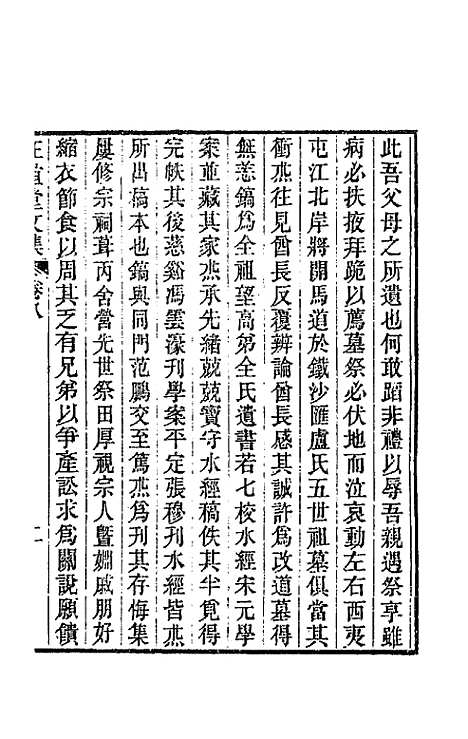 此吾父母之所遺也何敢蹈非禮以辱吾親遇祭享雖
病必扶掖拜跪以薦墓祭必伏地而泣哀動左右西夷
屯江北岸將開馬道於鐵沙匯盧氏五世祖墓俱當其
衝燕往見酋長反覆辨論酋長感其誠許爲改道墓得
無恙鎬爲全祖望高弟全氏遺書若七校水經宋元學
案並藏其家燕承先緒兢兢寶守水經稿佚其半覓得
完帙其後慈谿馮雲濠刊學案平定張穆刊水經皆燕
所出稿本也鎬與同門范鵬交至篤燕爲刊其存悔集
屢修宗祠葺丙舍營先世祭田厚視宗人曁姻戚朋好
縮衣節食以周其乏有兄弟以爭產訟求爲關說願饋
文集 卷八
二